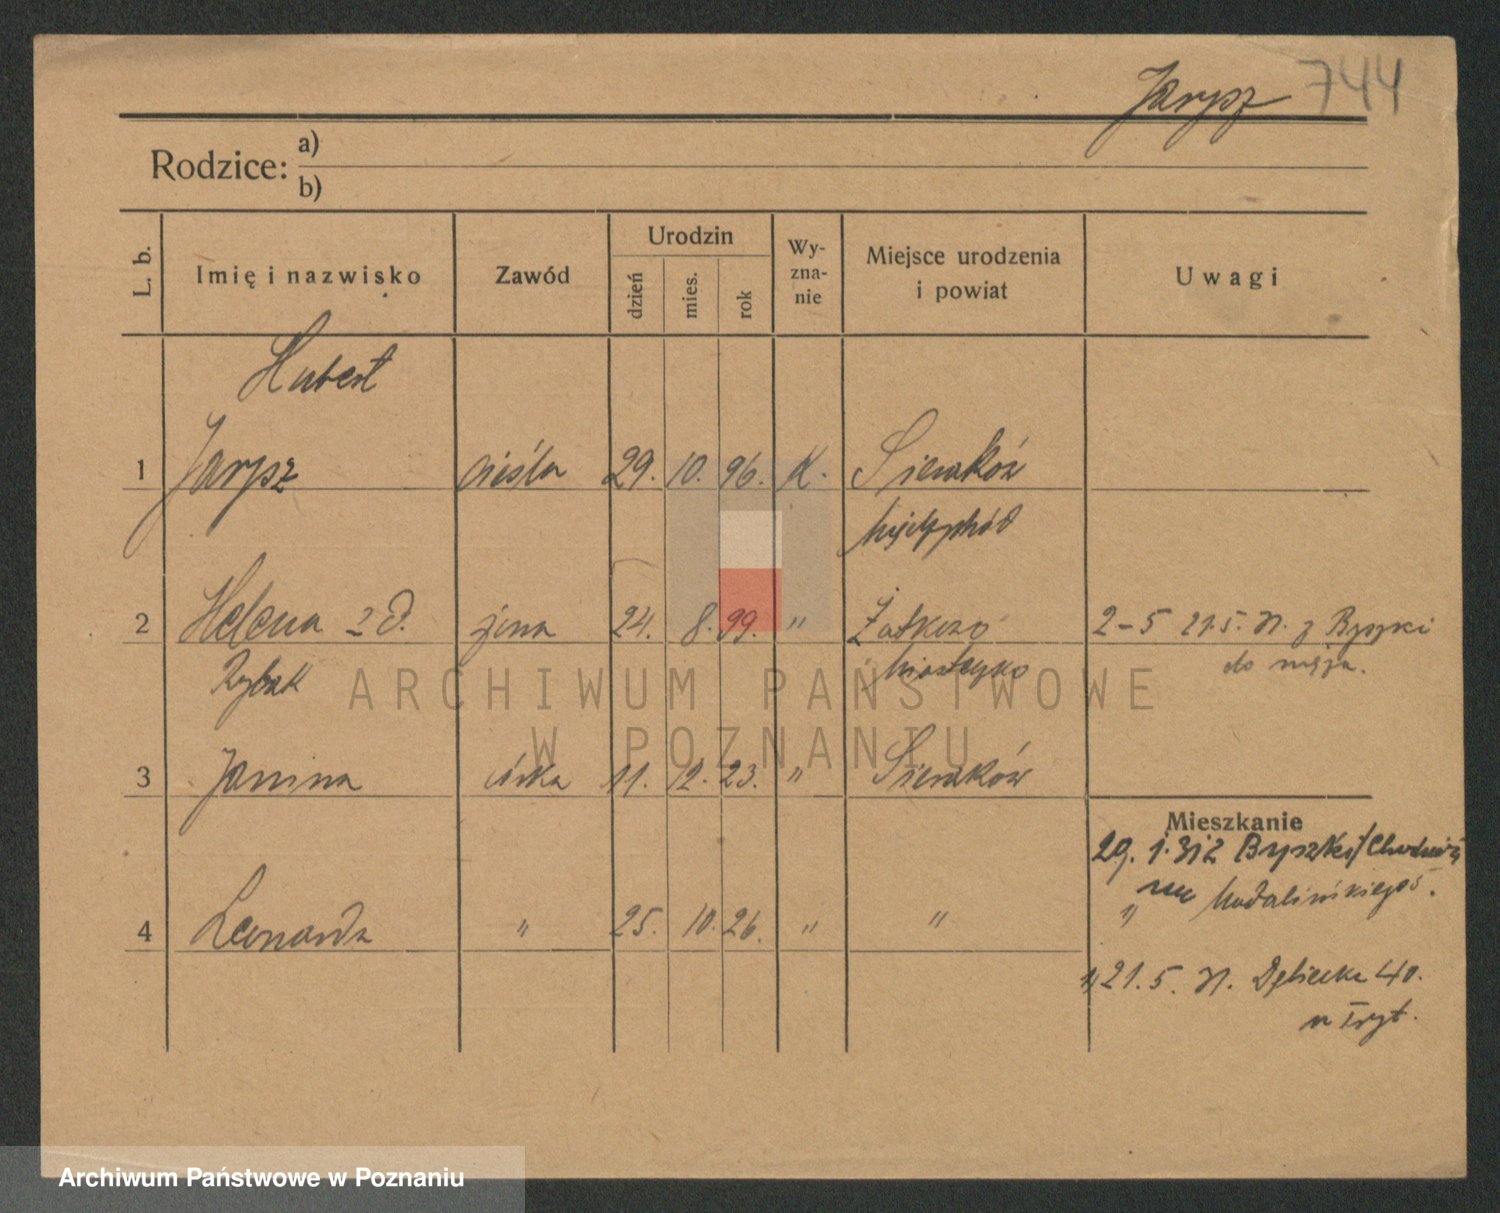 Jarysz 744
Rodzice: a)
b)
L. b.
Imię i nazwisko
Zawód
Urodzin
dzień
mies.
rok
Wy-
zna-
nie
Miejsce urodzenia
i powiat
Uwagi
Hubert
1 Jarysz cieśla 29. 10. 96. K. Sieraków
2 Helena z d. żona 24. 8. 99. "
2-5 21.5. z
Rybak
do męża.
3 Janina córka 11. 12. 23. " Sieraków
Mieszkanie
29. 1.
Madalińskiego 5.
4 Leonarda " 25. 10. 26. " "
21. 5. Dębiecka 40.
ARCHIWUM PAŃSTWOWE
W POZNANIU
Archiwum Państwowe w Poznaniu